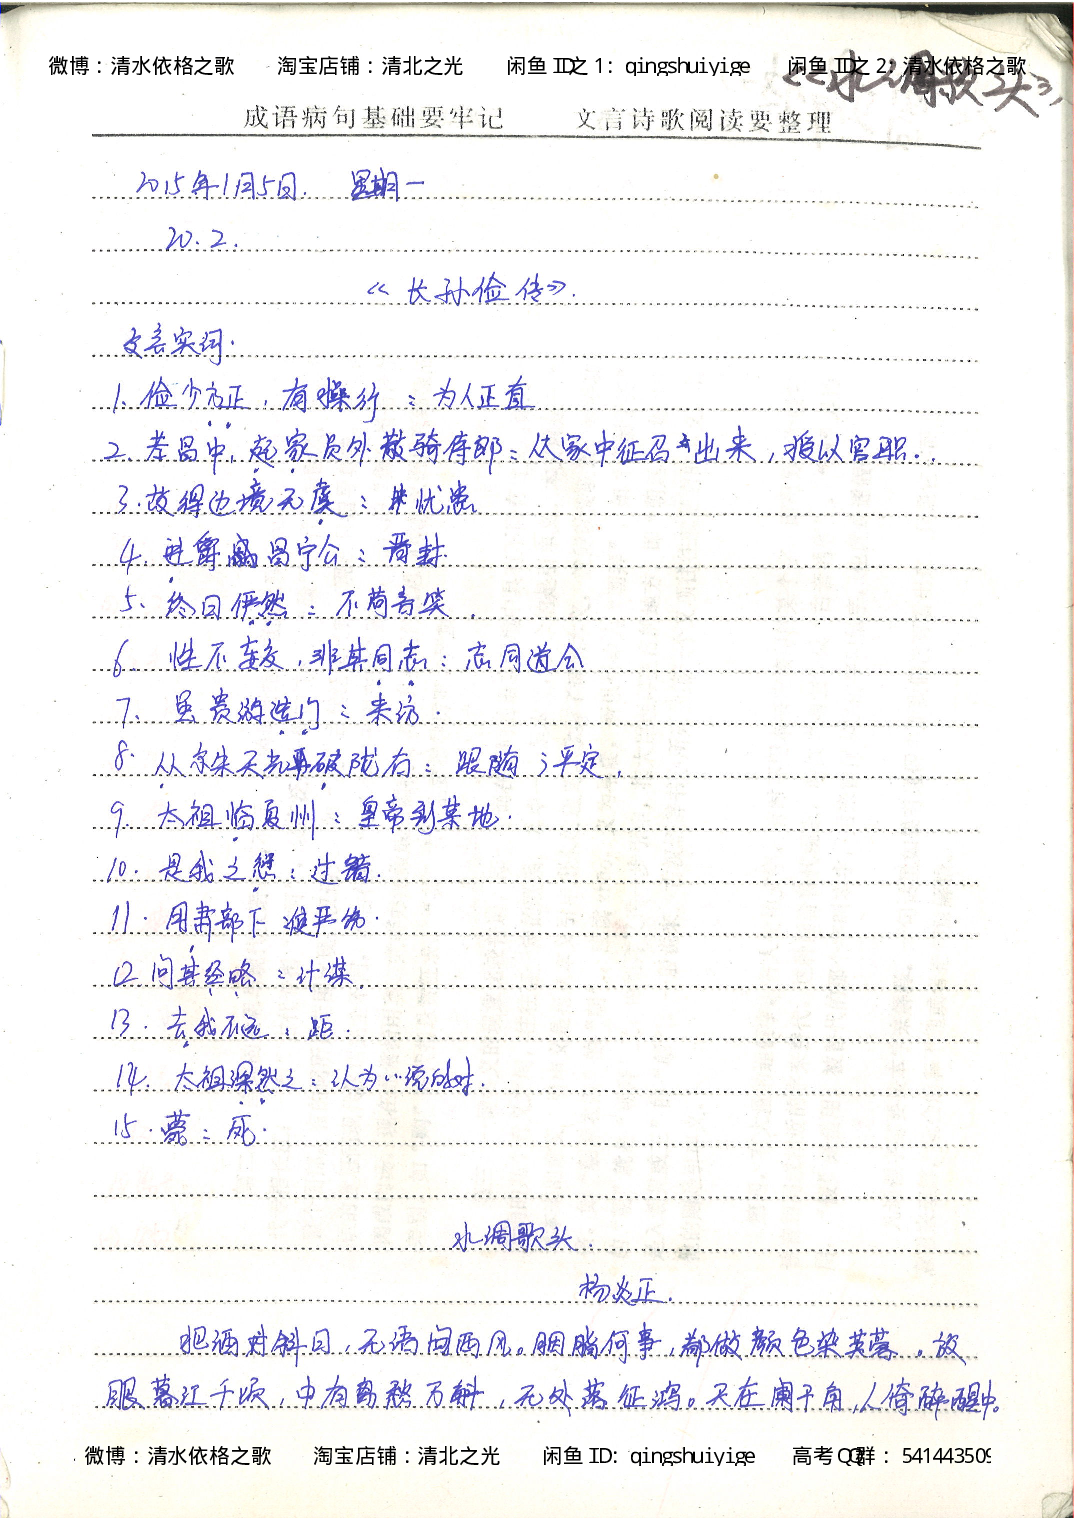 微博：清水依格之歌 淘宝店铺：清北之光 闲鱼 ID之 1: qingshuiyige 闲鱼 ID之 2: 清水依格之歌
《水调歌头》
成语病句基础要牢记 文言诗歌阅读要整理
2015年1月5日. 星期一
20.2.
《长孙俭传》.
文言实词.
1、俭少方正，有操行：为人正直
2、孝昌中，起家员外散骑侍郎：从家中征召出来，授以官职.
3.故得边境无虞：忧患
4、进爵 昌宁公：晋封
5、终日俨然：不苟言笑.
6 性不妄交，非其同志：志同道合
7、 贵游造门：来访.
8. 从尔朱天光 破陇右：跟随；平定.
9、太祖临夏州：皇帝到某地.
10. 是我之愆：过错.
11. 用肃部下 严
12 问其经略：计谋.
13. 去我不远：距.
14. 太祖深然之：认为…说的对.
15. 薨：死.
水调歌头.
杨炎正.
把酒对斜日，无语问西风。胭脂何事，都做颜色染芙蓉。放
眼暮江千顷，中有离愁万斛，无处落征鸿。天在阑干角，人倚醉醒中。
微博：清水依格之歌 淘宝店铺：清北之光 闲鱼 ID: qingshuiyige 高考QQ群：541443509